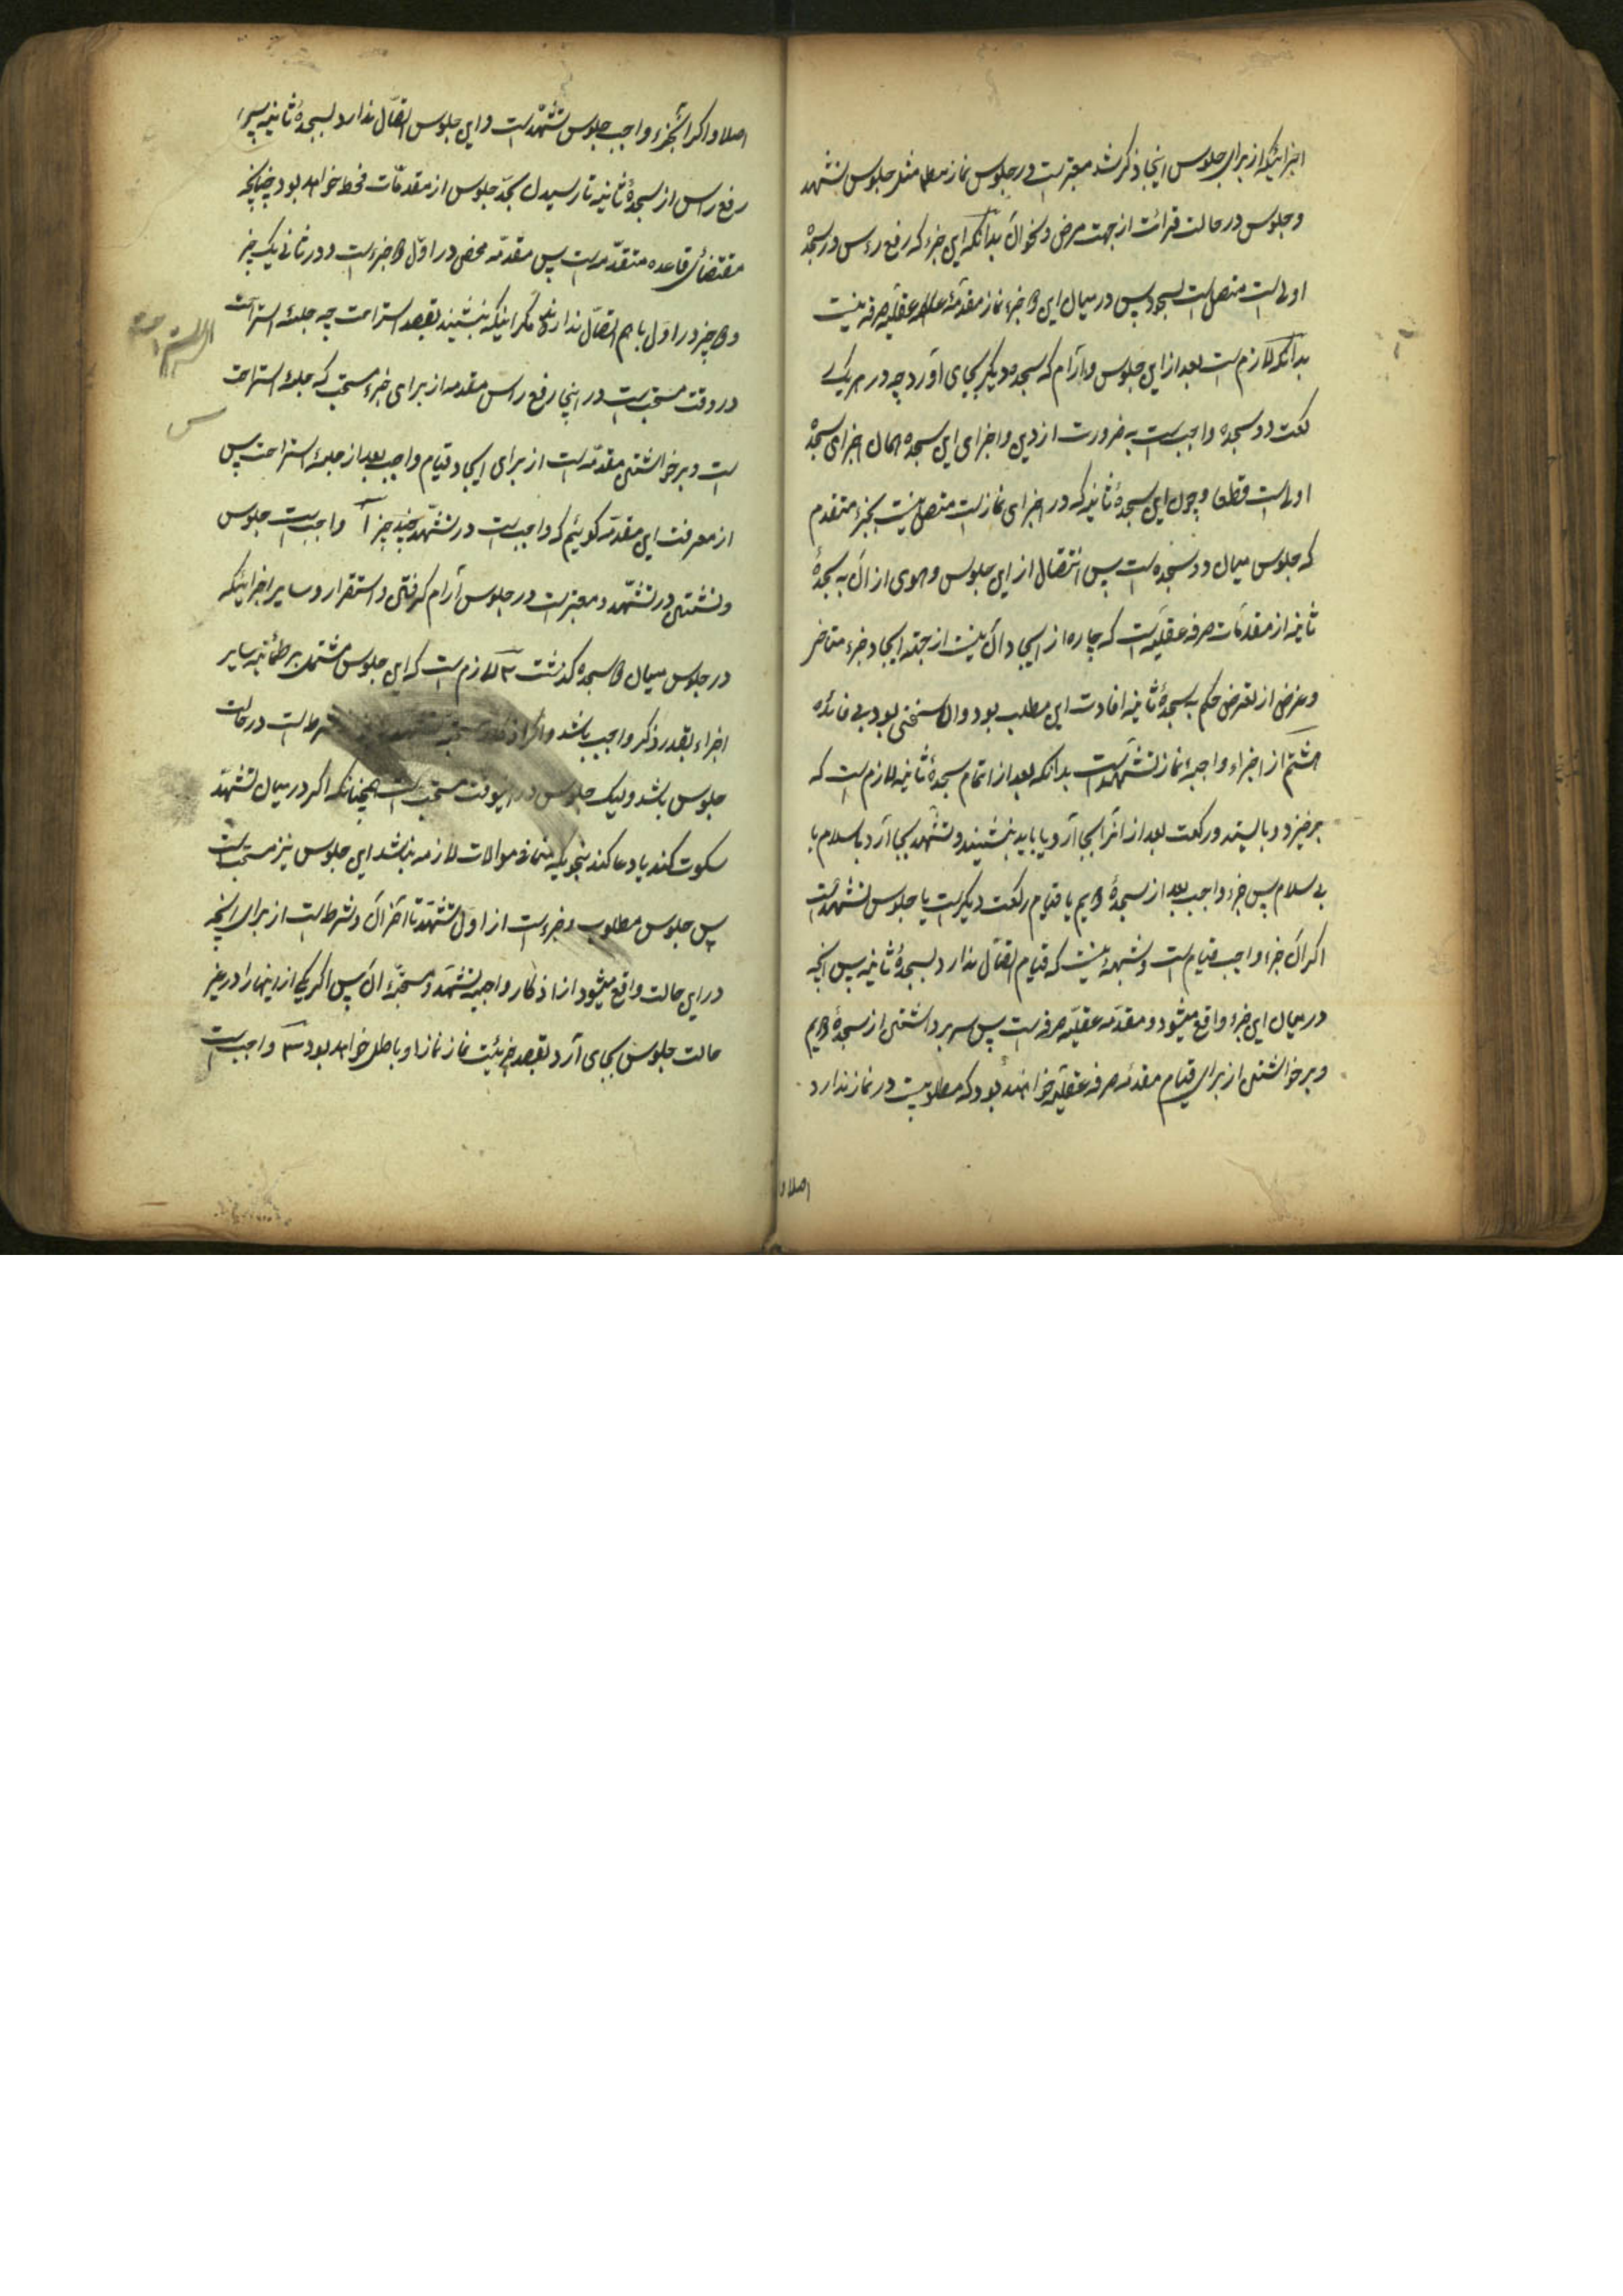 اجزائیکه از برای جلوس اینجا ذکر شد معتبر است در جلوس نماز مطلقا مثل جلوس تشهد
و جلوس در حالت قرائت از جهت مرض و نحو آن بدانکه این جزء که رفع رأس در سجدهٔ
اولی است متصل است بسجود پس در میان این دو جزء نماز مقدمهٔ عقلیه صرفه نیست
بدانکه لازم است بعد از این جلوس و آرام که سجده دیگر بجای آورد چه در هر یک
رکعت دو سجده واجب است به ضرورت از دین و اجزای این سجده همان اجزای سجدهٔ
اولی است قطعا و چون این سجدهٔ ثانیه که در اجزای نماز است متصل نیست بجزء متقدم
که جلوس میان دو سجده است پس انتقال از این جلوس و هوی از آن به سجدهٔ
ثانیه از مقدمات صرفه عقلیه است که چاره از ایجاد آن نیست از جهة ایجاد جزء متاخر
و غرض از تعرض حکم به سجدهٔ ثانیه افادت این مطلب بود والا سخنی بود بی فائده
هشتم از اجزاء واجبهٔ نماز تشهد است بدانکه بعد از اتمام سجدهٔ ثانیه لازم است که
برخیزد و بایستد و رکعت بعد از آنرا بجا آرد یا باید بنشیند و تشهد بجا آرد با سلام یا
بی سلام پس جزء واجب بعد از سجدهٔ دویم یا قیام رکعت دیگر است یا جلوس تشهد است
اگر آن جزء واجب قیام است و شبهه نیست که قیام اتصال ندارد بسجدهٔ ثانیه پس آنچه
در میان این جزء واقع میشود و مقدمه عقلیه صرفه است پس سر برداشتن از سجدهٔ دویم
و برخواستن از برای قیام مقدمهٔ صرفه عقلیه خواهند بود که مطلوبیت در نماز ندارد
اصلا و
اصلا و اگر آنجزء واجب جلوس تشهد است و این جلوس اتصال ندارد بسجدهٔ ثانیه پس
رفع راس از سجدهٔ ثانیه تا رسیدن بحد جلوس از مقدمات محض خواهد بود چنانچه
مقتضای قاعده متقدمه است پس مقدمه محض در اول دو جزء است و در ثانی یک چیز
و دو چیز در اول با هم اتصال ندارند مگر اینکه بنشیند بقصد استراحت چه جلسهٔ استراحت
در وقت مستحب است در اینجا رفع راس مقدمه از برای جزء مستحب که جلسهٔ استراحت
است و برخواستن مقدمه است از برای ایجاد قیام واجب بعد از جلسهٔ استراحت پس
از معرفت این مقدمه گوئیم که واجب است در تشهد چند چیز ۱ واجب است جلوس
و نشستن در تشهد و معتبر است در جلوس آرام گرفتن و استقرار و سایر اجزائیکه
در جلوس میان دو سجده گذشت ۲ لازم است که این جلوس مشتمل بر طمأنینه سایر
اجزاء بقدر ذکر واجب باشد و اگر شرط است در حالت
جلوس باشد ولیک جلوس در اینوقت مستحب است همچنانکه اگر در میان تشهد
سکوت کند یا دعا کند بنحویکه منافی موالات لازمه نباشد این جلوس نیز مستحب است
پس جلوس مطلوب و جزء است از اول تشهد تا آخر آن و شرط است از برای آنچه
در این حالت واقع میشود از اذکار واجبه تشهد و مستحبهٔ آن پس اگر یکی از اینها را در غیر
حالت جلوس بجای آرد بقصد جزئیت نماز نماز او باطل خواهد بود ۳ واجب است